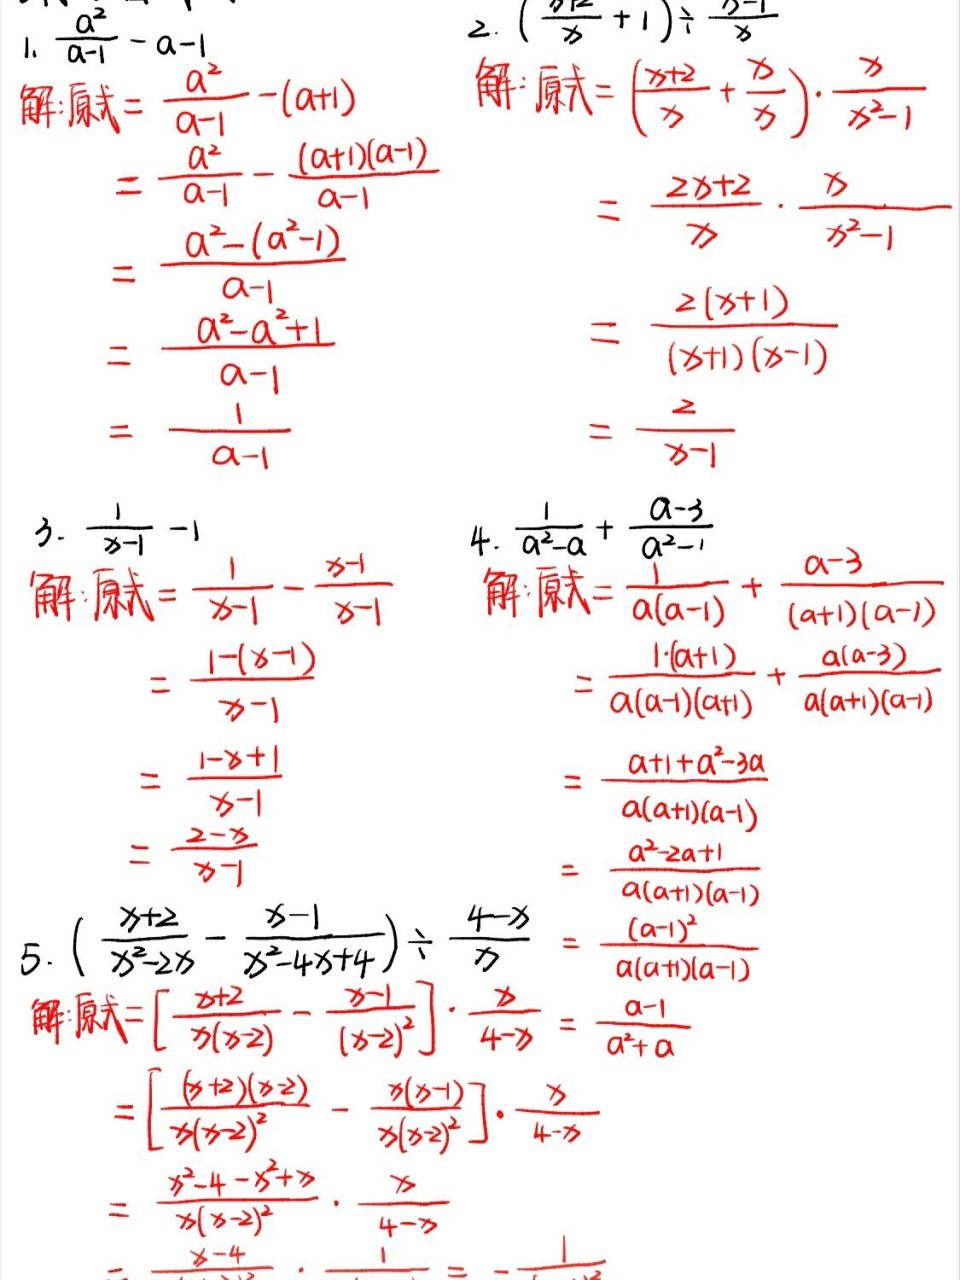 1. a²/(a-1) - a-1
解:原式 = a²/(a-1) - (a+1)
= a²/(a-1) - (a+1)(a-1)/(a-1)
= (a²-(a²-1))/(a-1)
= (a²-a²+1)/(a-1)
= 1/(a-1)
2. ((x+2)/x + 1) ÷
解:原式 = ((x+2)/x + x/x) · x/(x²-1)
= (2x+2)/x · x/(x²-1)
= 2(x+1)/((x+1)(x-1))
= 2/(x-1)
3. 1/(x-1) - 1
解:原式 = 1/(x-1) - (x-1)/(x-1)
= (1-(x-1))/(x-1)
= (1-x+1)/(x-1)
= (2-x)/(x-1)
4. 1/(a²-a) + (a-3)/(a²-1)
解:原式 = 1/(a(a-1)) + (a-3)/((a+1)(a-1))
= 1·(a+1)/(a(a-1)(a+1)) + a(a-3)/(a(a+1)(a-1))
= (a+1+a²-3a)/(a(a+1)(a-1))
= (a²-2a+1)/(a(a+1)(a-1))
= (a-1)²/(a(a+1)(a-1))
= (a-1)/(a²+a)
5. ((x+2)/(x²-2x) - (x-1)/(x²-4x+4)) ÷ (4-x)/x
解:原式 = [(x+2)/(x(x-2)) - (x-1)/(x-2)²] · x/(4-x)
= [(x+2)(x-2)/(x(x-2)²) - x(x-1)/(x(x-2)²)] · x/(4-x)
= (x²-4-x²+x)/(x(x-2)²) · x/(4-x)